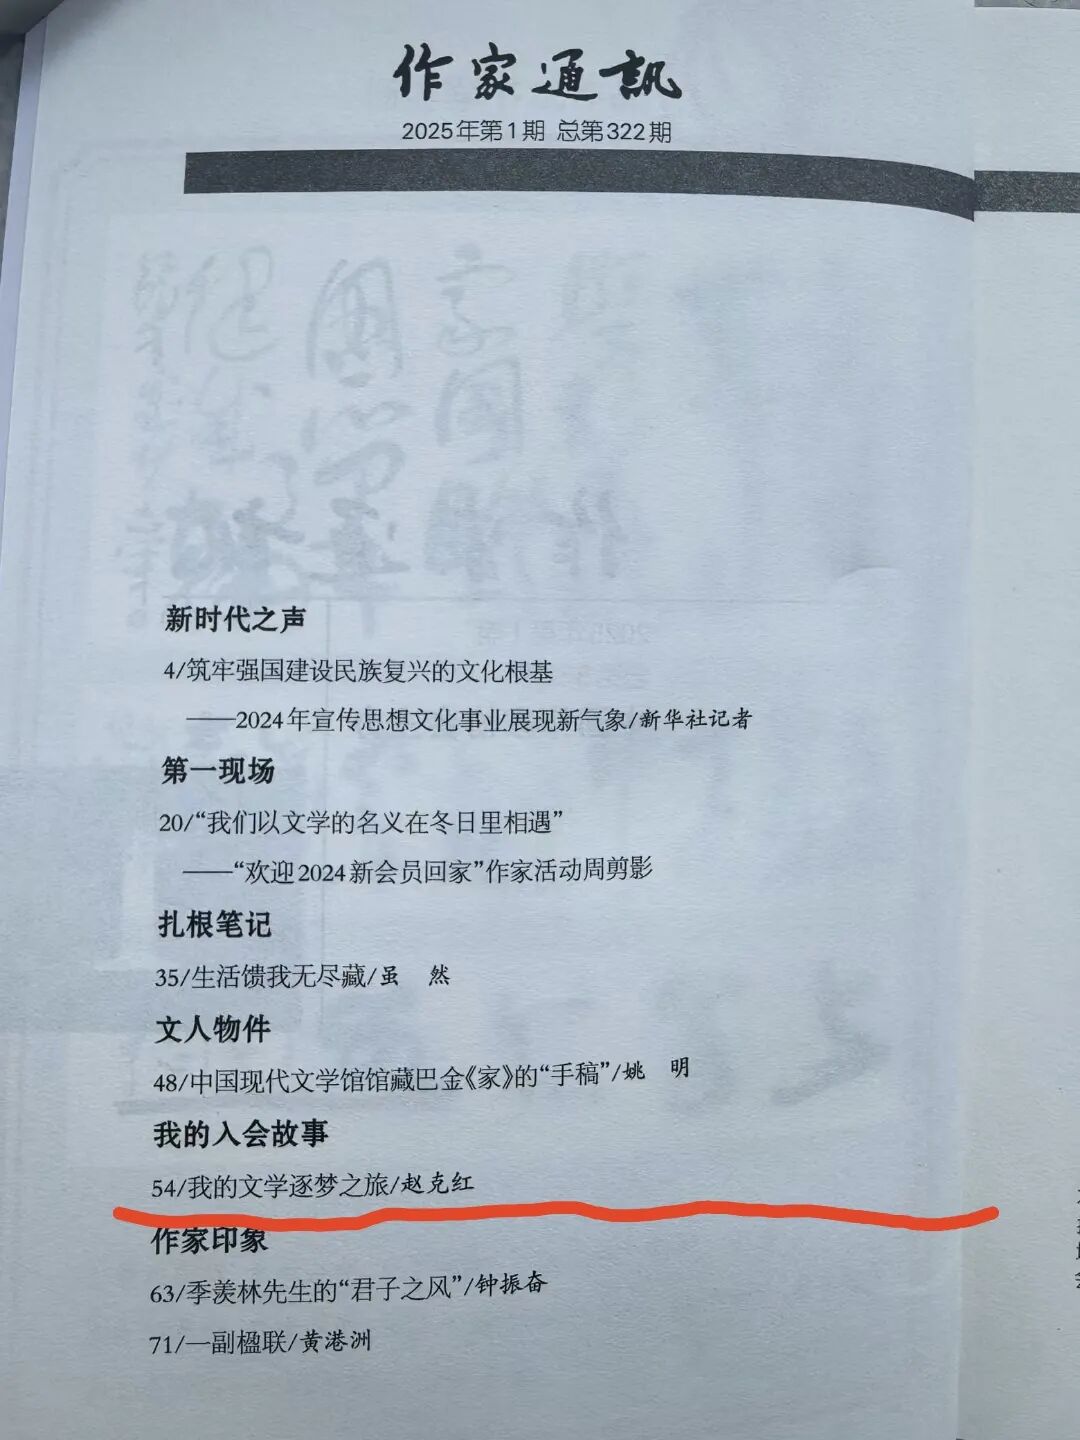 作家通訊
2025年第1期 总第322期
新时代之声
4/筑牢强国建设民族复兴的文化根基
——2024年宣传思想文化事业展现新气象/新华社记者
第一现场
20/“我们以文学的名义在冬日里相遇”
——“欢迎2024新会员回家”作家活动周剪影
扎根笔记
35/生活馈我无尽藏/虽　然
文人物件
48/中国现代文学馆馆藏巴金《家》的“手稿”/姚　明
我的入会故事
54/我的文学逐梦之旅/赵克红
作家印象
63/季羡林先生的“君子之风”/钟振奋
71/一副楹联/黄港洲